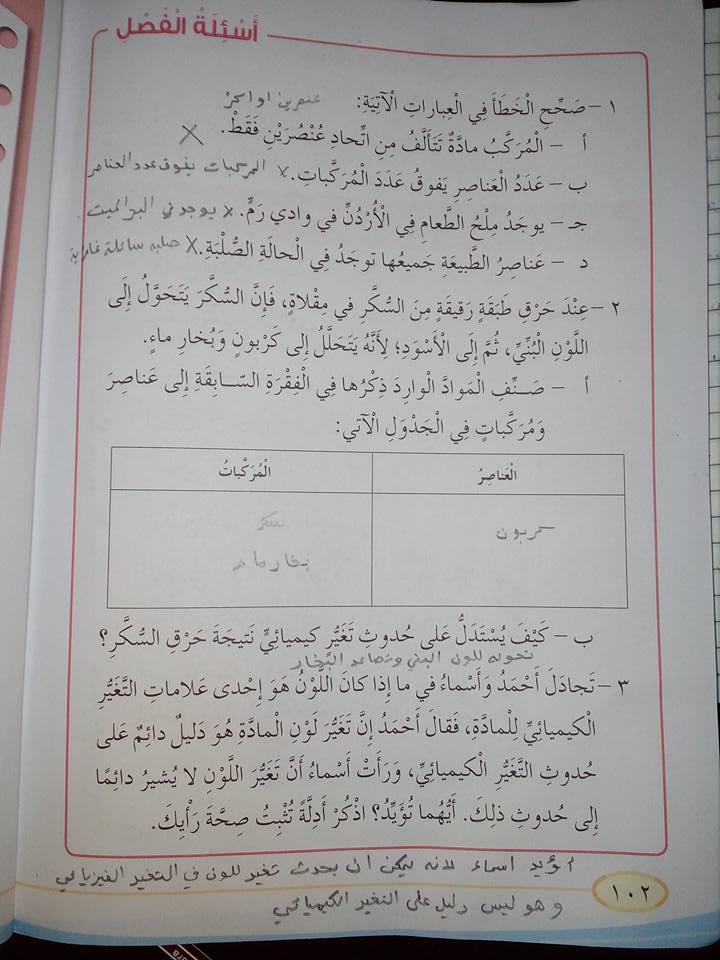 أَسْئِلَةُ الْفَصْلِ
١ – صَحِّحِ الْخَطَأَ فِي الْعِباراتِ الْآتِيَةِ: عنصرين او اكثر
أ – الْمُرَكَّبُ مادَّةٌ تَتَأَلَّفُ مِنِ اتِّحادِ عُنْصُرَيْنِ فَقَطْ. X
ب – عَدَدُ الْعَناصِرِ يَفوقُ عَدَدَ الْمُرَكَّباتِ. X المركبات يفوق عدد العناصر
جـ – يوجَدُ مِلْحُ الطَّعامِ فِي الْأُرْدُنِّ في وادي رَمٍّ. X يوجد في البحر الميت
د – عَناصِرُ الطَّبيعَةِ جَميعُها توجَدُ فِي الْحالَةِ الصُّلْبَةِ. X صلبه سائلة غازية
٢ – عِنْدَ حَرْقِ طَبَقَةٍ رَقيقَةٍ مِنَ السُّكَّرِ في مِقْلاةٍ، فَإِنَّ السُّكَّرَ يَتَحَوَّلُ إِلى
اللَّوْنِ الْبُنِّيِّ، ثُمَّ إِلى الْأَسْوَدِ؛ لِأَنَّهُ يَتَحَلَّلُ إِلى كَرْبونٍ وَبُخارِ ماءٍ.
أ – صَنِّفِ الْمَوادَّ الْوارِدَ ذِكْرُها فِي الْفِقْرَةِ السّابِقَةِ إِلى عَناصِرَ
وَمُرَكَّباتٍ فِي الْجَدْوَلِ الْآتي:
الْعَناصِرُ الْمُرَكَّباتُ
كربون سكر
بخار ماء
ب – كَيْفَ يُسْتَدَلُّ عَلى حُدوثِ تَغَيُّرٍ كيمِيائِيٍّ نَتيجَةَ حَرْقِ السُّكَّرِ؟
تحوله للون البني وتصاعد البخار
٣ – تَجادَلَ أَحْمَدُ وَأَسْماءُ في ما إِذا كانَ اللَّوْنُ هوَ إِحْدى عَلاماتِ التَّغَيُّرِ
الْكيمِيائِيِّ لِلْمادَّةِ، فَقالَ أَحْمَدُ إِنَّ تَغَيُّرَ لَوْنِ الْمادَّةِ هُوَ دَليلٌ دائِمٌ عَلى
حُدوثِ التَّغَيُّرِ الْكيمِيائِيِّ، وَرَأَتْ أَسْماءُ أَنَّ تَغَيُّرَ اللَّوْنِ لا يُشيرُ دائِمًا
إِلى حُدوثِ ذلِكَ. أَيُّهُما تُؤَيِّدُ؟ اذْكُرْ أَدِلَّةً تُثْبِتُ صِحَّةَ رَأْيِكَ.
أؤيد اسماء لانه يمكن ان يحدث تغير للون في التغير الفيزيائي
وهو ليس دليل على التغير الكيميائي
١٠٢